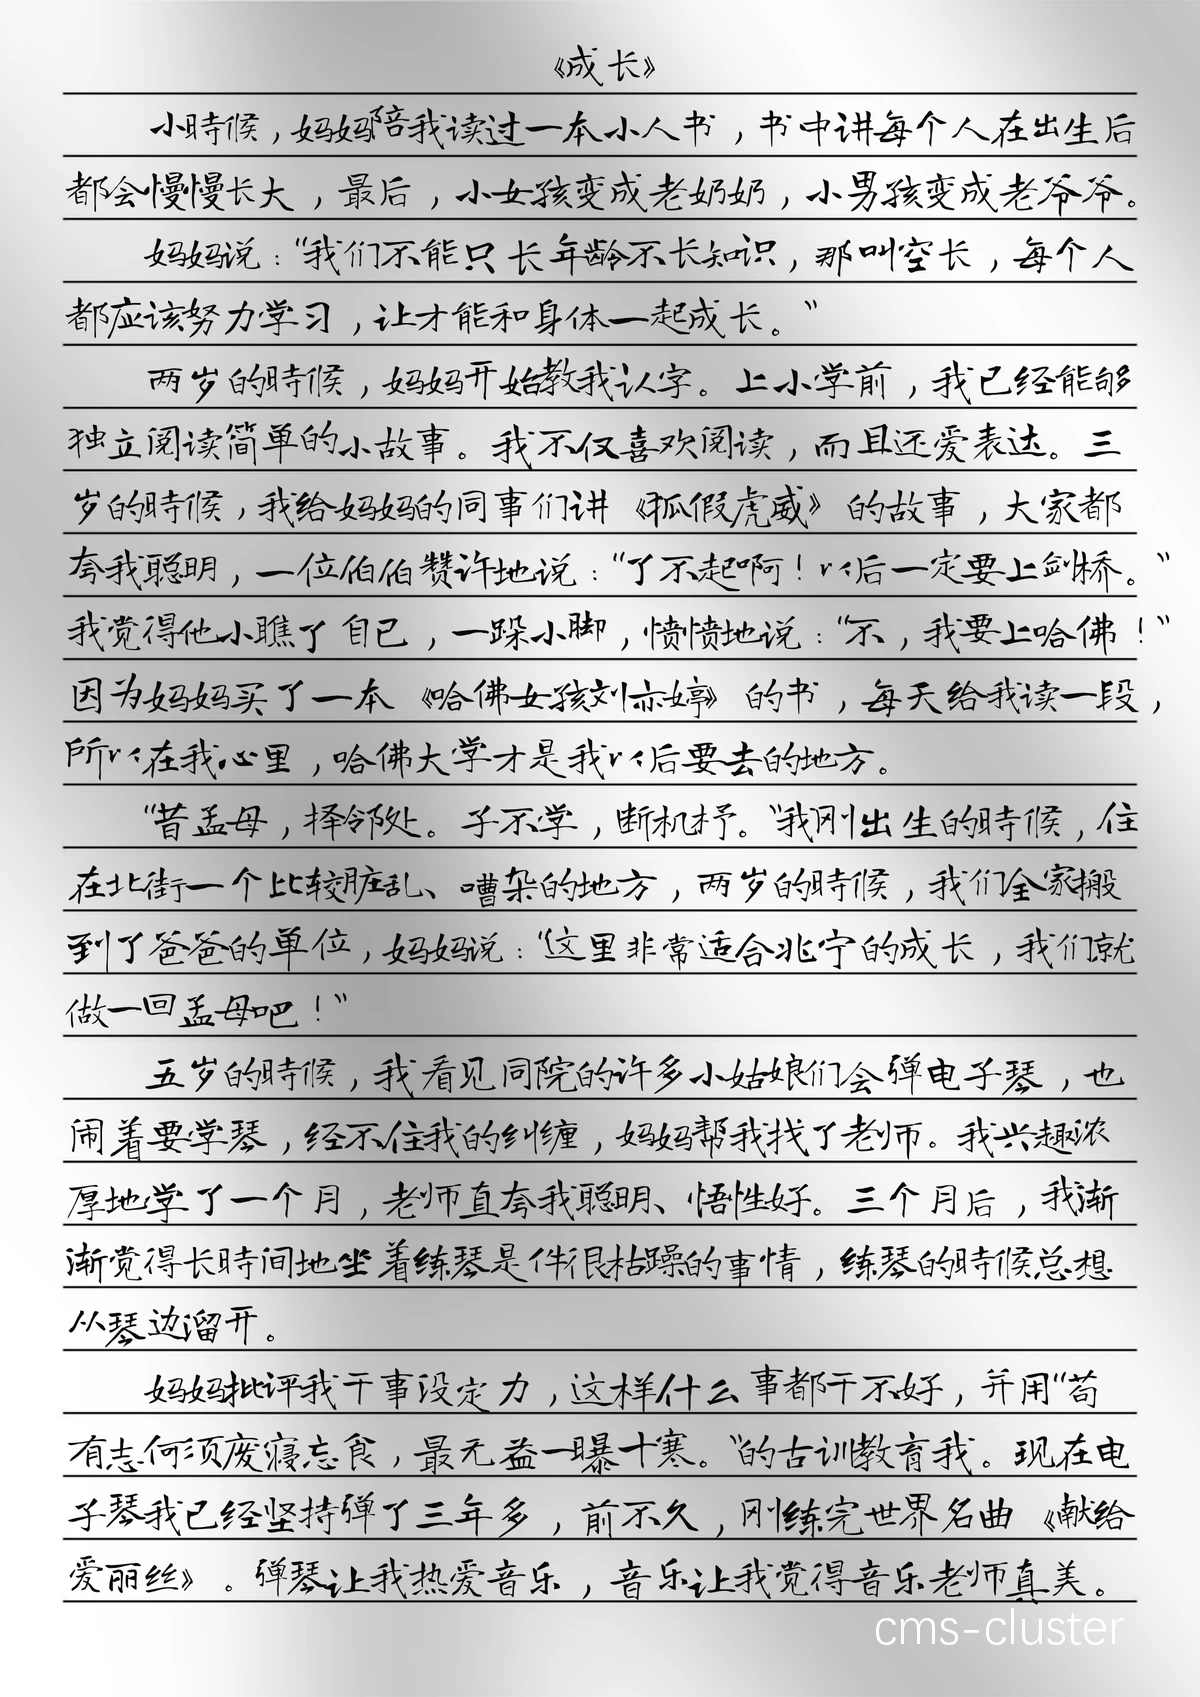 《成长》
小時候，妈妈陪我读过一本小人书，书中讲每个人在出生后
都会慢慢长大，最后，小女孩变成老奶奶，小男孩变成老爷爷。
妈妈说：“我们不能只长年龄不长知识，那叫空长，每个人
都应该努力学习，让才能和身体一起成长。”
两岁的時候，妈妈开始教我认字。上小学前，我已经能够
独立阅读简单的小故事。我不仅喜欢阅读，而且还爱表达。三
岁的時候，我给妈妈的同事们讲《狐假虎威》的故事，大家都
夸我聪明，一位伯伯赞许地说：“了不起啊！以后一定要上剑桥。”
我觉得他小瞧了自己，一跺小脚，愤愤地说：“不，我要上哈佛！”
因为妈妈买了一本《哈佛女孩刘亦婷》的书，每天给我读一段，
所以在我心里，哈佛大学才是我以后要去的地方。
“昔孟母，择邻处。子不学，断机杼。”我刚出生的時候，住
在北街一个比较脏乱、嘈杂的地方，两岁的時候，我们全家搬
到了爸爸的单位，妈妈说：“这里非常适合兆宁的成长，我们就
做一回孟母吧！”
五岁的時候，我看见同院的许多小姑娘们会弹电子琴，也
闹着要学琴，经不住我的纠缠，妈妈帮我找了老师。我兴趣浓
厚地学了一个月，老师直夸我聪明、悟性好。三个月后，我渐
渐觉得长時间地坐着练琴是件很枯躁的事情，练琴的時候总想
从琴边溜开。
妈妈批评我干事没定力，这样什么事都干不好，并用“苟
有志何须废寝忘食，最无益一曝十寒。”的古训教育我。现在电
子琴我已经坚持弹了三年多，前不久，刚练完世界名曲《献给
爱丽丝》。弹琴让我热爱音乐，音乐让我觉得音乐老师真美。
cms-cluster